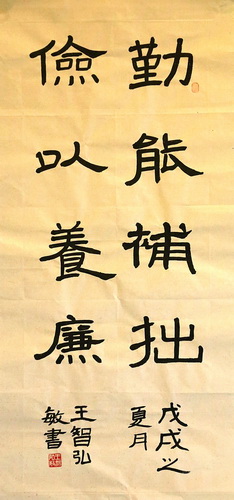 勤能補拙
儉以養廉
戊戌之
夏月
王智弘
敏書